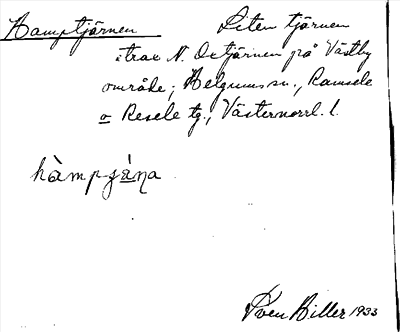 Hamptjärnen Liten tjärnen
strax N. Östjärnen på Västby
område; Helgums sn., Ramsele
o Resele tg., Västernorrl. l.
hàmpȿä́na
Sven Hiller 1933